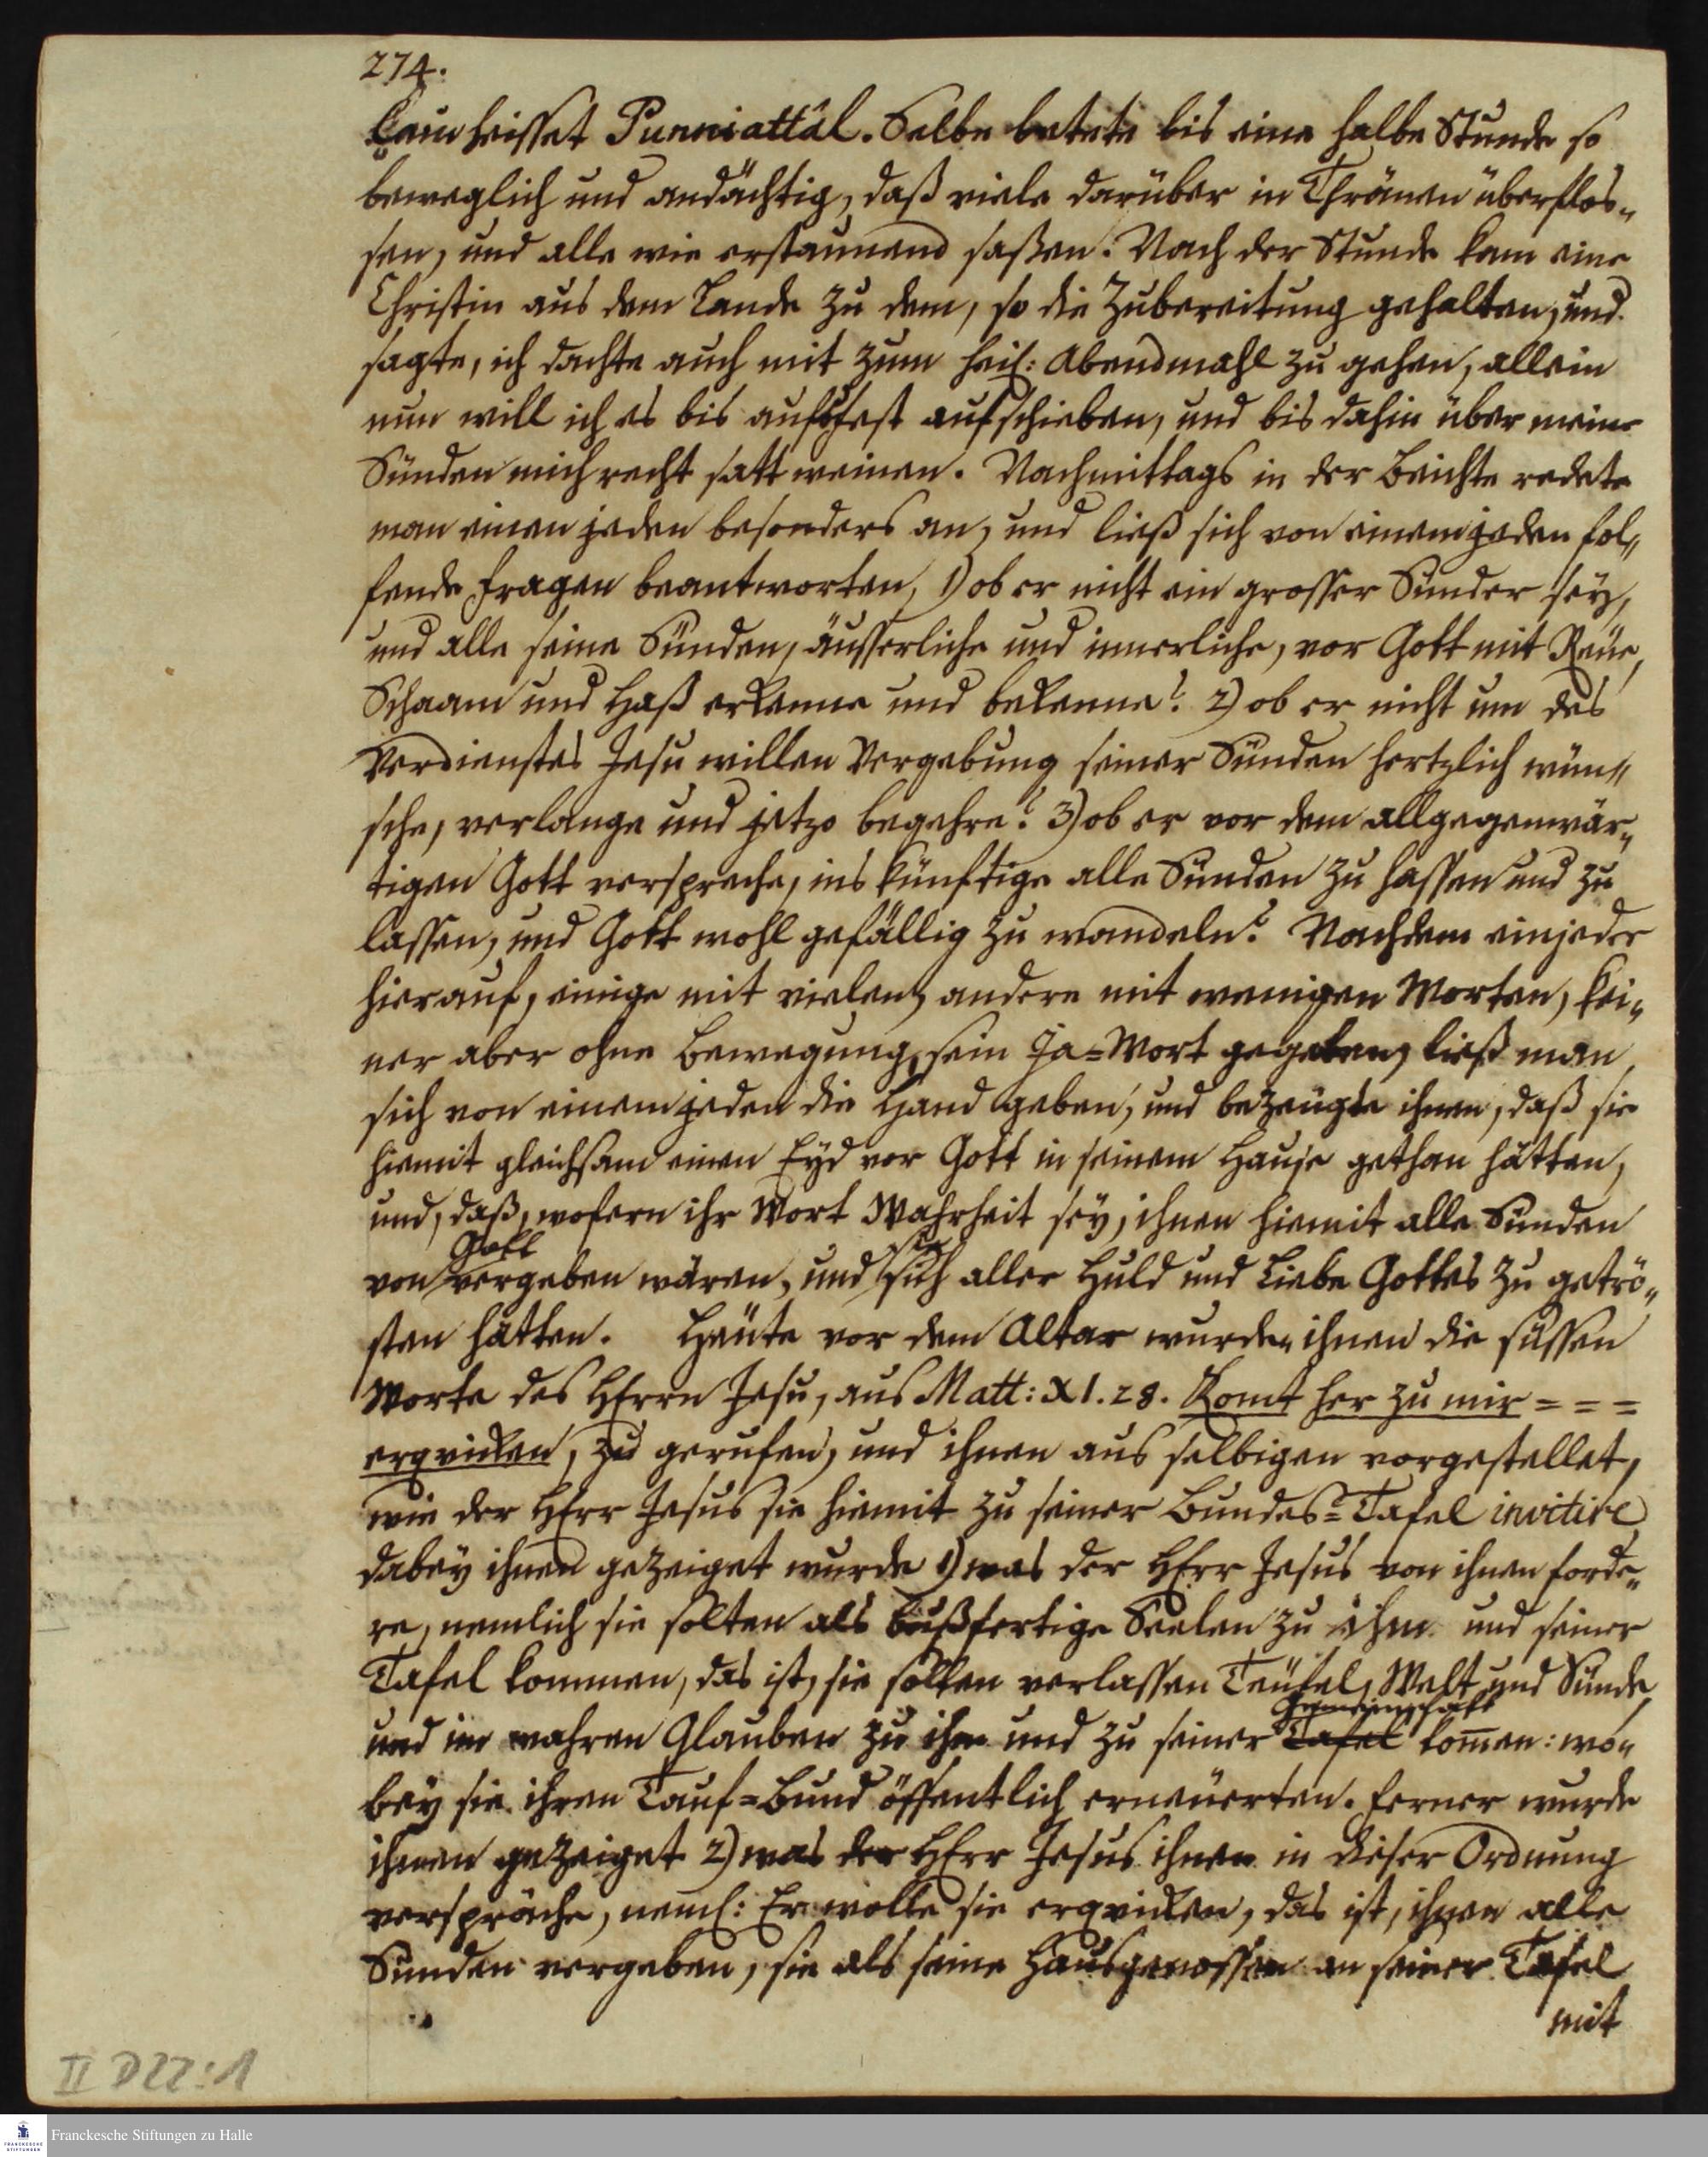 274.
heisset Punniattál. Selbe betete bis eine halbe Stunde so
beweglich und andächtig, daß viele darüber in Thränen überflos„
sen, und alle wie erstaunend saßen. Nach der Stunde kam eine
Christin aus dem Lande zu dem, so die Zubereitung gehalten, und
sagte, ich dachte auch mit zum heil: Abendmahl zu gehen, allein
nun will ich es bis aufs fest aufschieben, und bis dahin über meine
Sünden mich recht satt weinen. Nachmittags in der Beichte redete
man einen jeden besonders an, und ließ sich von einem jeden fol„
gende fragen beantworten, 1) ob er nicht ein grosser Sünder sey,
und alle seine Sünden, äusserliche und innerliche, vor Gott mit Reüe,
Schaam und Haß erkenne und bekenne? 2) ob er nicht um des
Verdienstes Jesu willen Vergebung seiner Sünden hertzlich wün„
sche, verlange und jetzo begehre? 3) ob er vor dem allgegenwär„
tigen Gott verspreche, ins künftige alle Sünden zu hassen und zu
lassen, und Gott wohl gefällig zu wandeln? Nachdem ein jeder
hierauf, einige mit vielen, andere mit wenigen Worten, kei„
ner aber ohne Bewegung, sein Ja=Wort gegeben, ließ man
sich von einem jeden die Hand geben, und bezeügte ihnen, daß sie
hiemit gleichsam einen Eyd vor Gott in seinem Hause gethan hätten,
und, daß, wofern ihr Wort Wahrheit sey, ihnen hiemit alle Sünden
Gott sie
von vergeben wären, und sich aller Huld und Liebe Gottes zu getrö„
sten hätten. Heüte vor dem Altar wurden ihnen die süssen
Worte des HErrn Jesu, aus Matt: XI. 28. Komt her zu mir = = =
erqviken, zu gerufen, und ihnen aus selbigen vorgestellet,
wie der HErr Jesus sie hiemit zu seiner Bundes=Tafel invitire,
dabey ihnen gezeiget wurde 1) was der HErr Jesus von ihnen forde„
re, nemlich sie solten als bußfertige Seelen zu ihm und seiner
Tafel kommen, das ist, sie solten verlassen Teüfel, Welt und Sünde,
Gemeinschaft
und im wahren Glauben zu ihm und zu seiner Tafel kom̅en: wo„
bey sie ihren Tauf=Bund öffentlich erneüerten. ferner wurde
ihnen gezeiget 2) was der HErr Jesus ihnen in dieser Ordnung
verspräche, neml: Er wolle sie erqviken, das ist, ihnen alle
Sünden vergeben, sie als seine Hausgenossen an seiner Tafel
mit
II D22:1
Franckesche Stiftungen zu Halle
FRANCKESCHE STIFTUNGEN